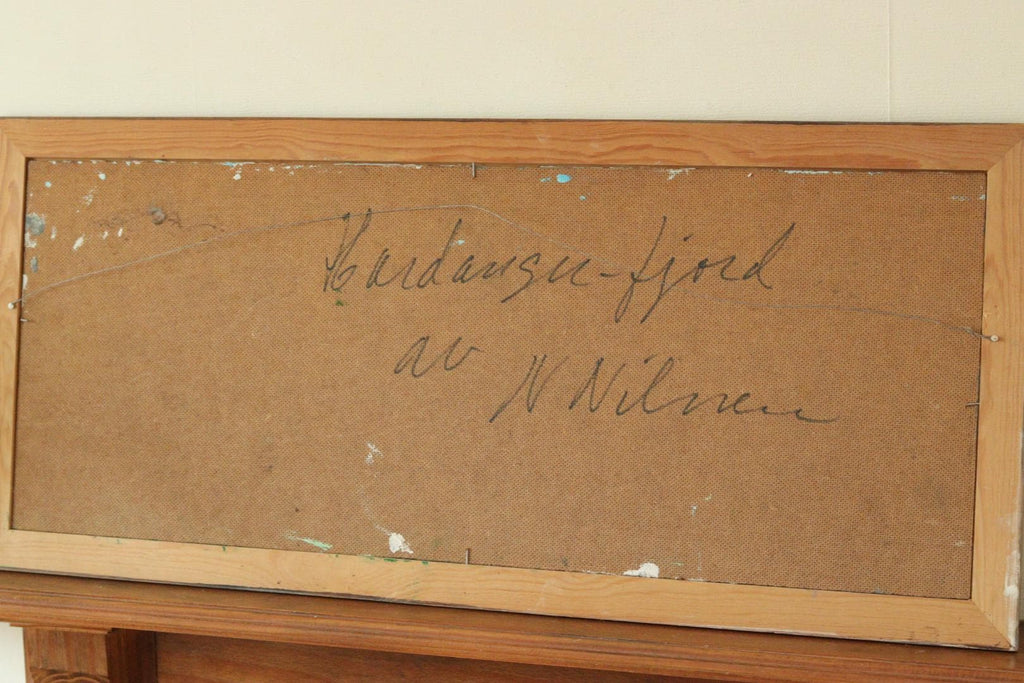 Hardanger-fjord
av N Nilsen